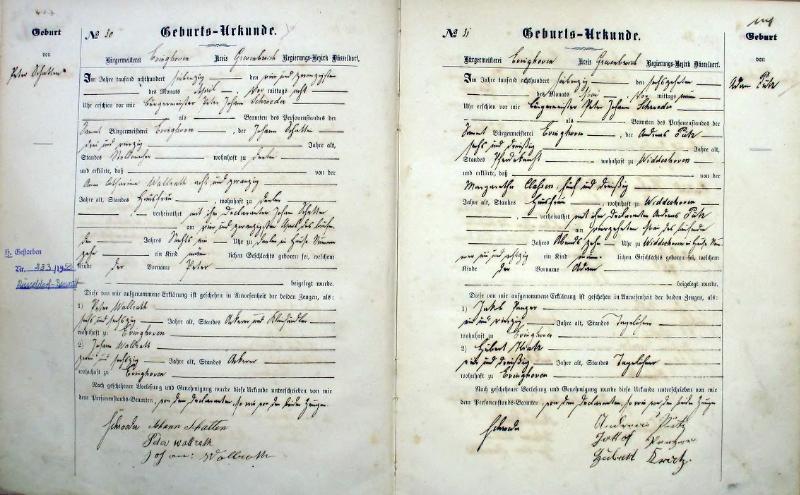 Geburt
von
Peter Schatten
№ 30
Geburts-Urkunde.
Bürgermeisterei Evinghoven Kreis Grevenbroich Regierungs-Bezirk Düsseldorf.
Im Jahre tausend achthundert siebenzig den ein und zwanzigsten
des Monats April, Vor mittags acht
Uhr erschien vor mir Bürgermeister Peter Johann Schroeder
als Beamten des Personenstandes der
Samt Bürgermeisterei Evinghoven, der Johann Schatten
drei und vierzig Jahre alt,
Standes wohnhaft zu
und erklärte, daß von der
Anna Catharina Wallrath acht und zwanzig
Jahre alt, Standes Hausfrau, wohnhaft zu
verheirathet mit ihm Declaranten Johann Schatten
am ein und zwanzigsten
Jahres Uhr zu
ein Kind lichen Geschlechts geboren sei, welchem
Kinde der Vorname Peter
beigelegt wurde.
Diese von mir aufgenommene Erklärung ist geschehen in Anwesenheit der beiden Zeugen, als:
1) Peter Wallrath
sechs und sechszig Jahre alt, Standes Ackerer und
wohnhaft zu Evinghoven
2) Johann Wallrath
und sechszig Jahre alt, Standes Ackerer
wohnhaft zu Evinghoven
Nach geschehener Vorlesung und Genehmigung wurde diese Urkunde unterschrieben von mir
dem Personenstands-Beamten, von dem Declaranten, so wie von den beiden Zeugen.
Schroeder Johann Schatten
Peter Wallrath
Johann Wallrath
H. Gestorben
Nr.
№ 31
Geburts-Urkunde.
Bürgermeisterei Evinghoven Kreis Grevenbroich Regierungs-Bezirk Düsseldorf.
Im Jahre tausend achthundert siebenzig den sechszehnten
des Monats Mai, Vor mittags neun
Uhr erschien vor mir Bürgermeister Peter Johann Schroeder
als Beamten des Personenstandes der
Samt Bürgermeisterei Evinghoven, der Andreas Pütz
sechs und dreißig Jahre alt,
Standes Pferdeknecht wohnhaft zu Widdeshoven
und erklärte, daß von der
Margaretha Clahsen, fünf und dreißig
Jahre alt, Standes Hausfrau, wohnhaft zu Widdeshoven
verheirathet mit ihm Declaranten Andreas Pütz
am
Jahres Abends zehn Uhr zu Widdeshoven
ein Kind lichen Geschlechts geboren sei, welchem
Kinde der Vorname Adam
beigelegt wurde.
Diese von mir aufgenommene Erklärung ist geschehen in Anwesenheit der beiden Zeugen, als:
1) Jakob
ein und vierzig Jahre alt, Standes Tagelöhner
wohnhaft zu Evinghoven
2) Hubert
und dreißig Jahre alt, Standes Tagelöhner
wohnhaft zu Evinghoven
Nach geschehener Vorlesung und Genehmigung wurde diese Urkunde unterschrieben von mir
dem Personenstands-Beamten, von dem Declaranten, so wie von den beiden Zeugen
Schroeder Andreas Pütz
Geburt
von
Adam Pütz